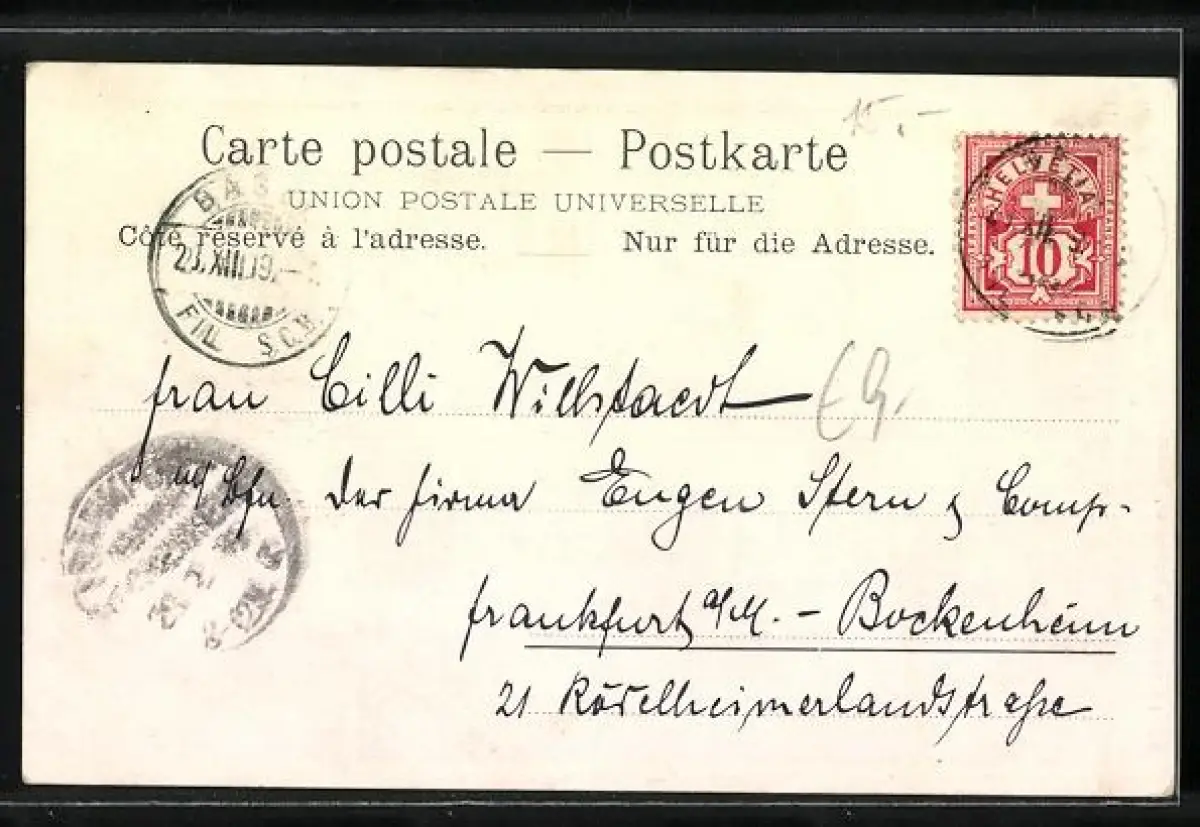 15.-
Carte postale — Postkarte
UNION POSTALE UNIVERSELLE
Côté réservé à l'adresse. Nur für die Adresse.
HELVETIA
10
BAS
FIL. SCB.
Frau Cilli Willstaedt
der Firma Eugen Stern & Comp.
Frankfurt a/M. - Bockenheim
21 Rödelheimerlandstraße
8-12N